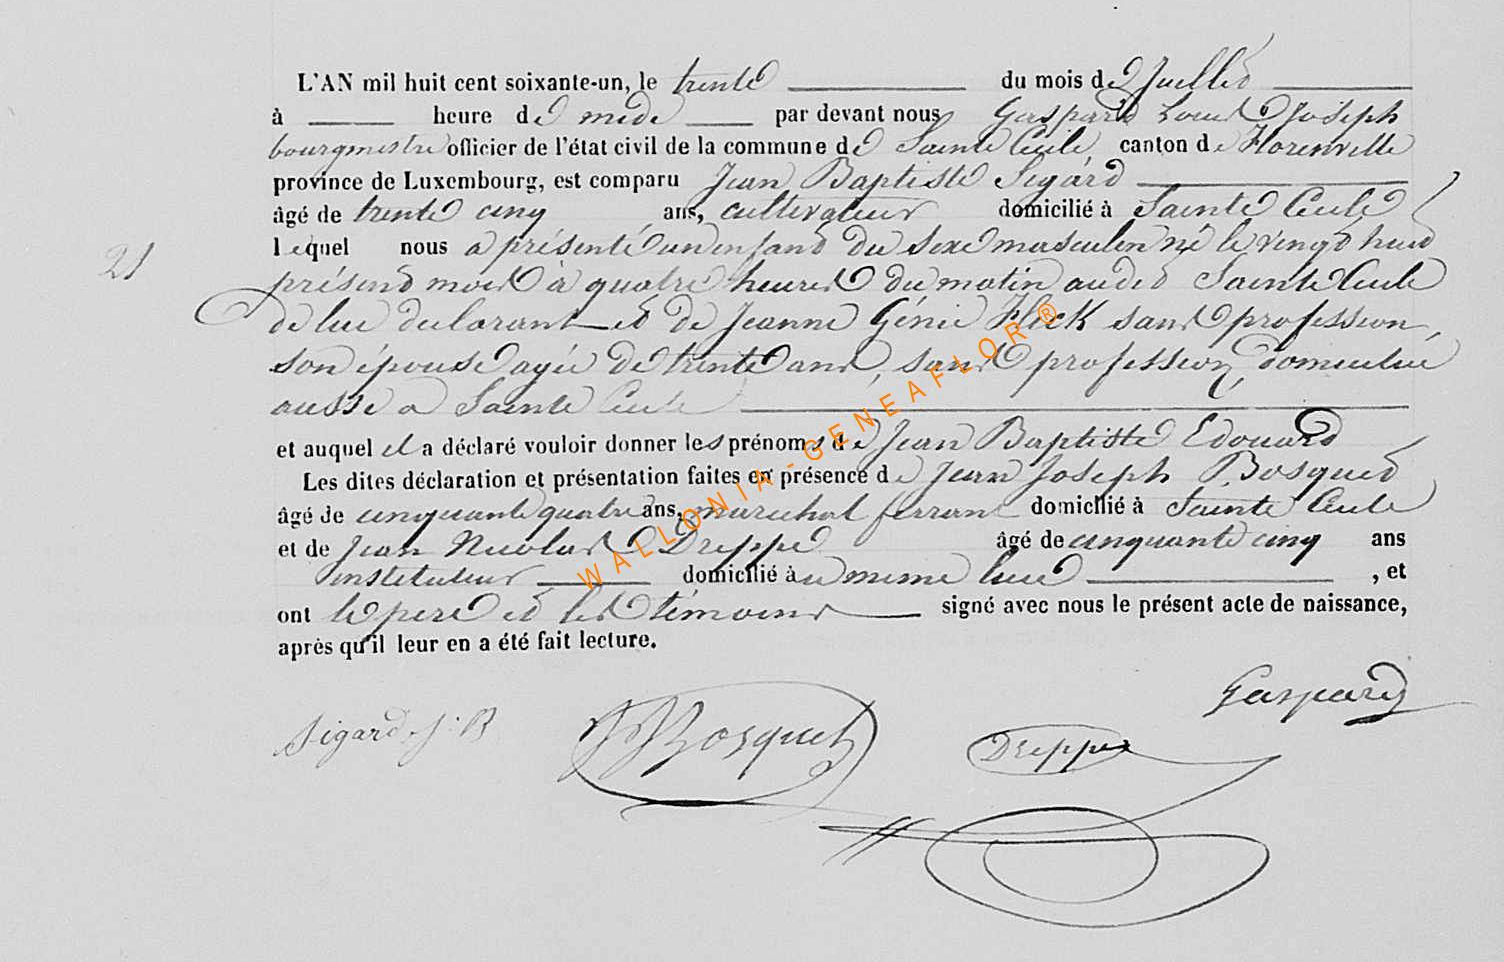 L'AN mil huit cent soixante-un, le trente du mois de Juillet
à heure de midi par devant nous Gaspard Louis Joseph
bourgmestre officier de l'état civil de la commune de Sainte Cécile canton de Florenville
province de Luxembourg, est comparu Jean Baptiste Sigard
âgé de trente cinq ans, cultivateur domicilié à Sainte Cécile
21 lequel nous a présenté un enfant du sexe masculin né le vingt huit
présent mois à quatre heures du matin audit Sainte Cécile
de lui déclarant et de Jeanne Génie sans profession,
son épouse agée de trente ans, sans profession, domiciliée
aussi a Sainte Cécile
et auquel il a déclaré vouloir donner les prénoms de Jean Baptiste Edouard
Les dites déclaration et présentation faites en présence de Jean Joseph Bosquet
âgé de cinquante quatre ans, marechal ferrant domicilié à Sainte Cécile
et de Jean Nicolas Dreppe âgé de cinquante cinq ans
instituteur domicilié à u meme lieu , et
ont le pere et les témoins signé avec nous le présent acte de naissance,
après qu'il leur en a été fait lecture.
Gaspard
Sigard J: B
JJBosquet
Dreppe
WALLONIA-GENEAFLOR®